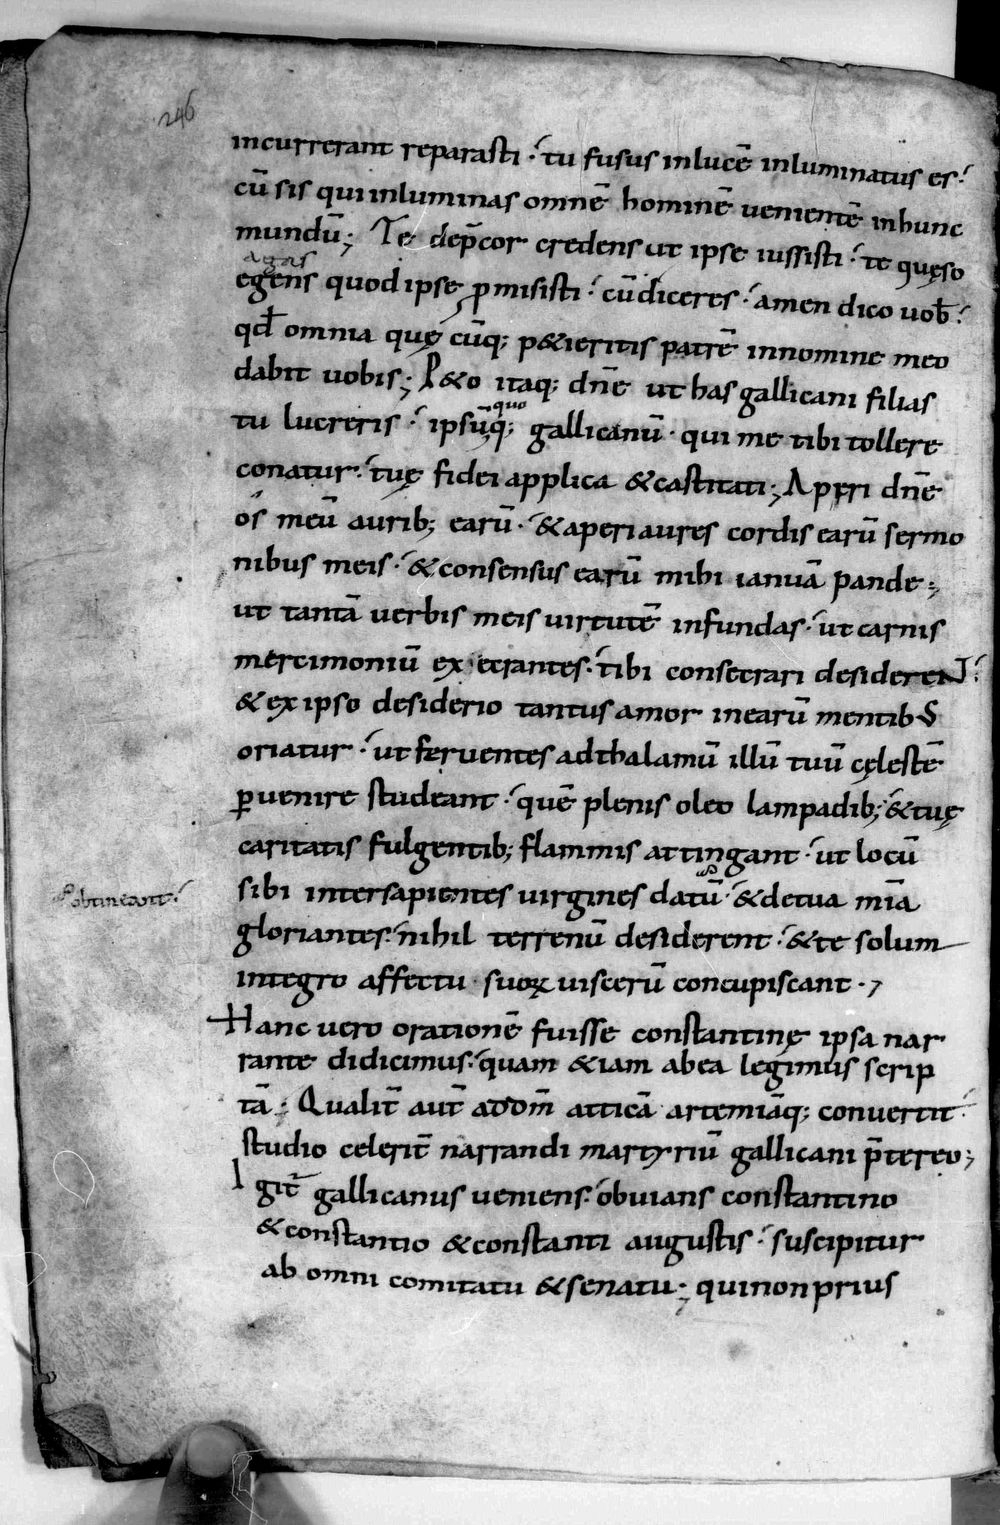 246
incurrerant reparasti· tu fusus inlucē inluminatus es·
cū sis qui inluminas omnē hominē uenientē inhunc
mundū; Te dep̄cor credens ut ipse iussisti· te quęso
agas
egens quod ipse ꝓmisisti· cūdiceres· amen dico uob̄·
qđ omnia quę cūq; p&ieritis patrē innomine meo
dabit uobis; P&o itaq; dn̄e ut has gallicani filias
quo
tu lucreris· ipsūq; gallicanū· qui me tibi tollere
conatur· tuę fidei applica &castitati; Aperi dn̄e
os meū aurib; earū· &aperi aures cordis earū sermo
nibus meis· &consensus earū mihi ianuā pande;
ut tantā uerbis meis uirtutē infundas· ut carnis
mercimoniū ex ecrantes· tibi consecrari desiderent·
&ex ipso desiderio tantus amor inearū mentibs
oriatur· ut feruentes adthalamū illū tuū cęlestē
ꝑuenire studeant· quē plenis oleo lampadib; &tuę
caritatis fulgentib; flammis attingant· ut locū
obtineant·
sibi intersapientes uirgines datū· &detua mīa
gloriantes· nihil terrenū desiderent· &te solum
integro affectu suoꝝ uiscerū concupiscant·
Hanc uero orationē fuisse constantinę ipsa nar
rante didicimus· quam &iam abea legimus scrip
tā· Qualit̄ aut̄ addm̄ atticā artemiāq; conuertit·
studio celerit̄ narrandi martyriū gallicani p̄tereo;
Igit̄ gallicanus ueniens· obuians constantino
&constantio &constanti augustis· suscipitur
ab omni comitatu &senatu; quinonprius